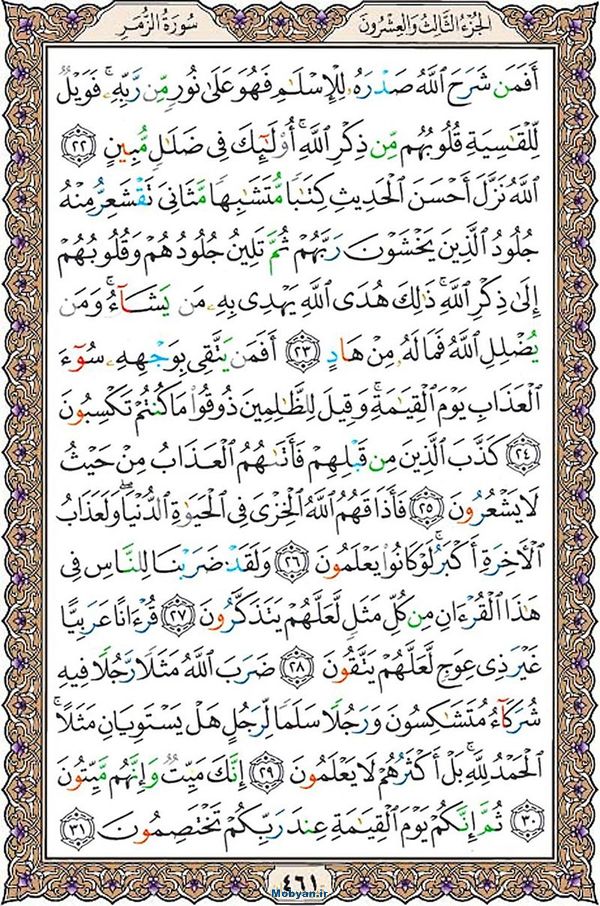 الجُزءُ الثَّالِثُ وَالعِشْرُونَ
سُورَةُ الزُّمَرِ
أَفَمَن شَرَحَ ٱللَّهُ صَدْرَهُۥ لِلْإِسْلَـٰمِ فَهُوَ عَلَىٰ نُورٍ مِّن رَّبِّهِۦ ۚ فَوَيْلٌ
لِّلْقَـٰسِيَةِ قُلُوبُهُم مِّن ذِكْرِ ٱللَّهِ ۚ أُو۟لَـٰٓئِكَ فِى ضَلَـٰلٍ مُّبِينٍ ﴿٢٢﴾
ٱللَّهُ نَزَّلَ أَحْسَنَ ٱلْحَدِيثِ كِتَـٰبًا مُّتَشَـٰبِهًا مَّثَانِىَ تَقْشَعِرُّ مِنْهُ
جُلُودُ ٱلَّذِينَ يَخْشَوْنَ رَبَّهُمْ ثُمَّ تَلِينُ جُلُودُهُمْ وَقُلُوبُهُمْ
إِلَىٰ ذِكْرِ ٱللَّهِ ۚ ذَٰلِكَ هُدَى ٱللَّهِ يَهْدِى بِهِۦ مَن يَشَآءُ ۚ وَمَن
يُضْلِلِ ٱللَّهُ فَمَا لَهُۥ مِنْ هَادٍ ﴿٢٣﴾ أَفَمَن يَتَّقِى بِوَجْهِهِۦ سُوٓءَ
ٱلْعَذَابِ يَوْمَ ٱلْقِيَـٰمَةِ ۚ وَقِيلَ لِلظَّـٰلِمِينَ ذُوقُوا۟ مَا كُنتُمْ تَكْسِبُونَ
﴿٢٤﴾ كَذَّبَ ٱلَّذِينَ مِن قَبْلِهِمْ فَأَتَىٰهُمُ ٱلْعَذَابُ مِنْ حَيْثُ
لَا يَشْعُرُونَ ﴿٢٥﴾ فَأَذَاقَهُمُ ٱللَّهُ ٱلْخِزْىَ فِى ٱلْحَيَوٰةِ ٱلدُّنْيَا ۖ وَلَعَذَابُ
ٱلْأَخِرَةِ أَكْبَرُ ۚ لَوْ كَانُوا۟ يَعْلَمُونَ ﴿٢٦﴾ وَلَقَدْ ضَرَبْنَا لِلنَّاسِ فِى
هَـٰذَا ٱلْقُرْءَانِ مِن كُلِّ مَثَلٍ لَّعَلَّهُمْ يَتَذَكَّرُونَ ﴿٢٧﴾ قُرْءَانًا عَرَبِيًّا
غَيْرَ ذِى عِوَجٍ لَّعَلَّهُمْ يَتَّقُونَ ﴿٢٨﴾ ضَرَبَ ٱللَّهُ مَثَلًا رَّجُلًا فِيهِ
شُرَكَآءُ مُتَشَـٰكِسُونَ وَرَجُلًا سَلَمًا لِّرَجُلٍ هَلْ يَسْتَوِيَانِ مَثَلًا ۚ
ٱلْحَمْدُ لِلَّهِ ۚ بَلْ أَكْثَرُهُمْ لَا يَعْلَمُونَ ﴿٢٩﴾ إِنَّكَ مَيِّتٌ وَإِنَّهُم مَّيِّتُونَ
﴿٣٠﴾ ثُمَّ إِنَّكُمْ يَوْمَ ٱلْقِيَـٰمَةِ عِندَ رَبِّكُمْ تَخْتَصِمُونَ ﴿٣١﴾
٤٦١
Mobyan.ir